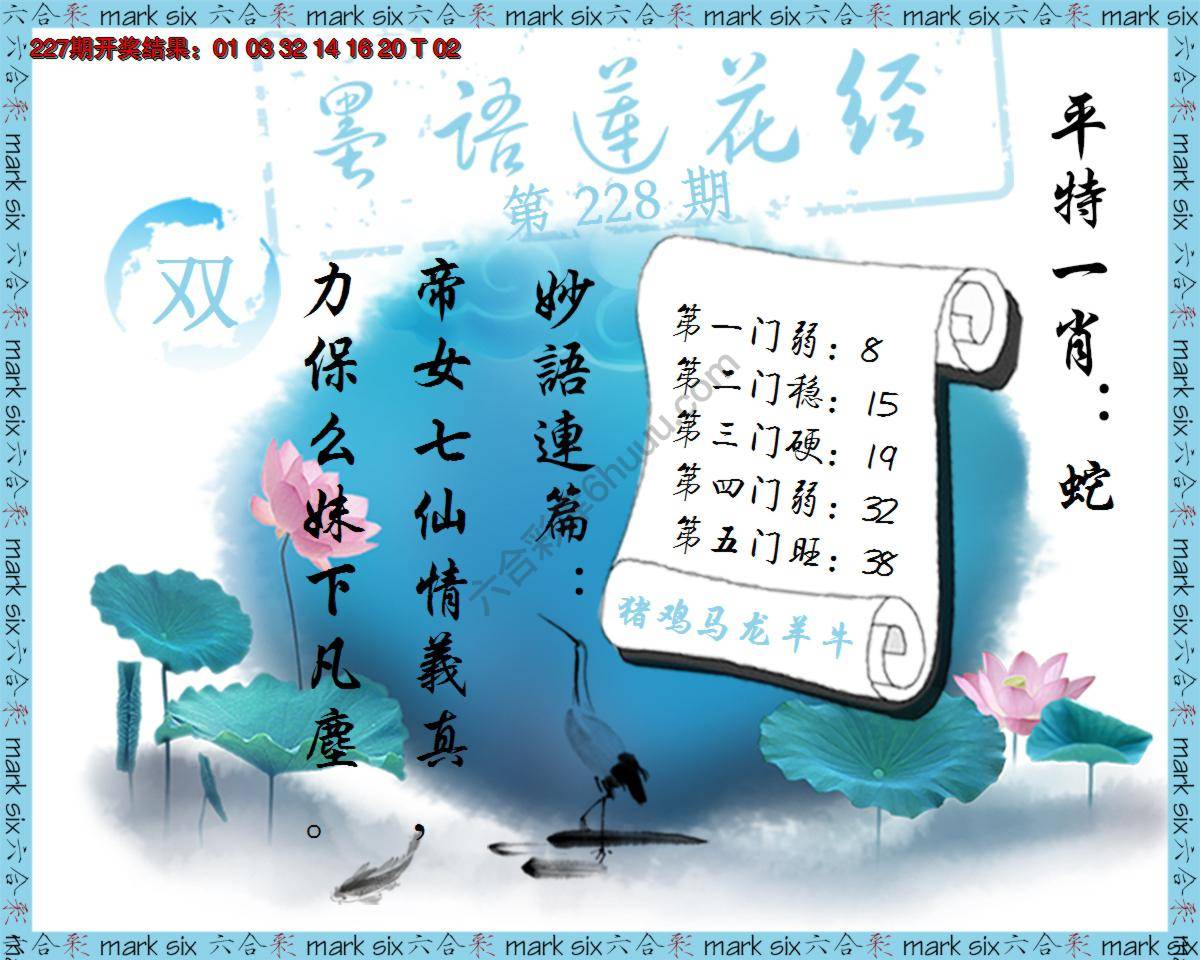 六合彩 mark six 六合彩 mark six 六合彩 mark six 六合彩 mark six 六合彩 mark six 六合彩 mark six
227期开奖结果：01 03 32 14 16 20 T 02
墨語莲花经
第 228 期
双
平特一肖：蛇
妙語連篇：
帝女七仙情義真，
力保么妹下凡塵。
第一门弱：8
第二门稳：15
第三门硬：19
第四门弱：32
第五门旺：38
猪鸡马龙羊牛
六合彩 mark six 六合彩 mark six 六合彩 mark six 六合彩 mark six 六合彩 mark six 六合彩 mark six